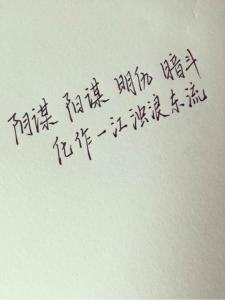 阴谋 阳谋 明仇 暗斗
化作一江浊浪东流